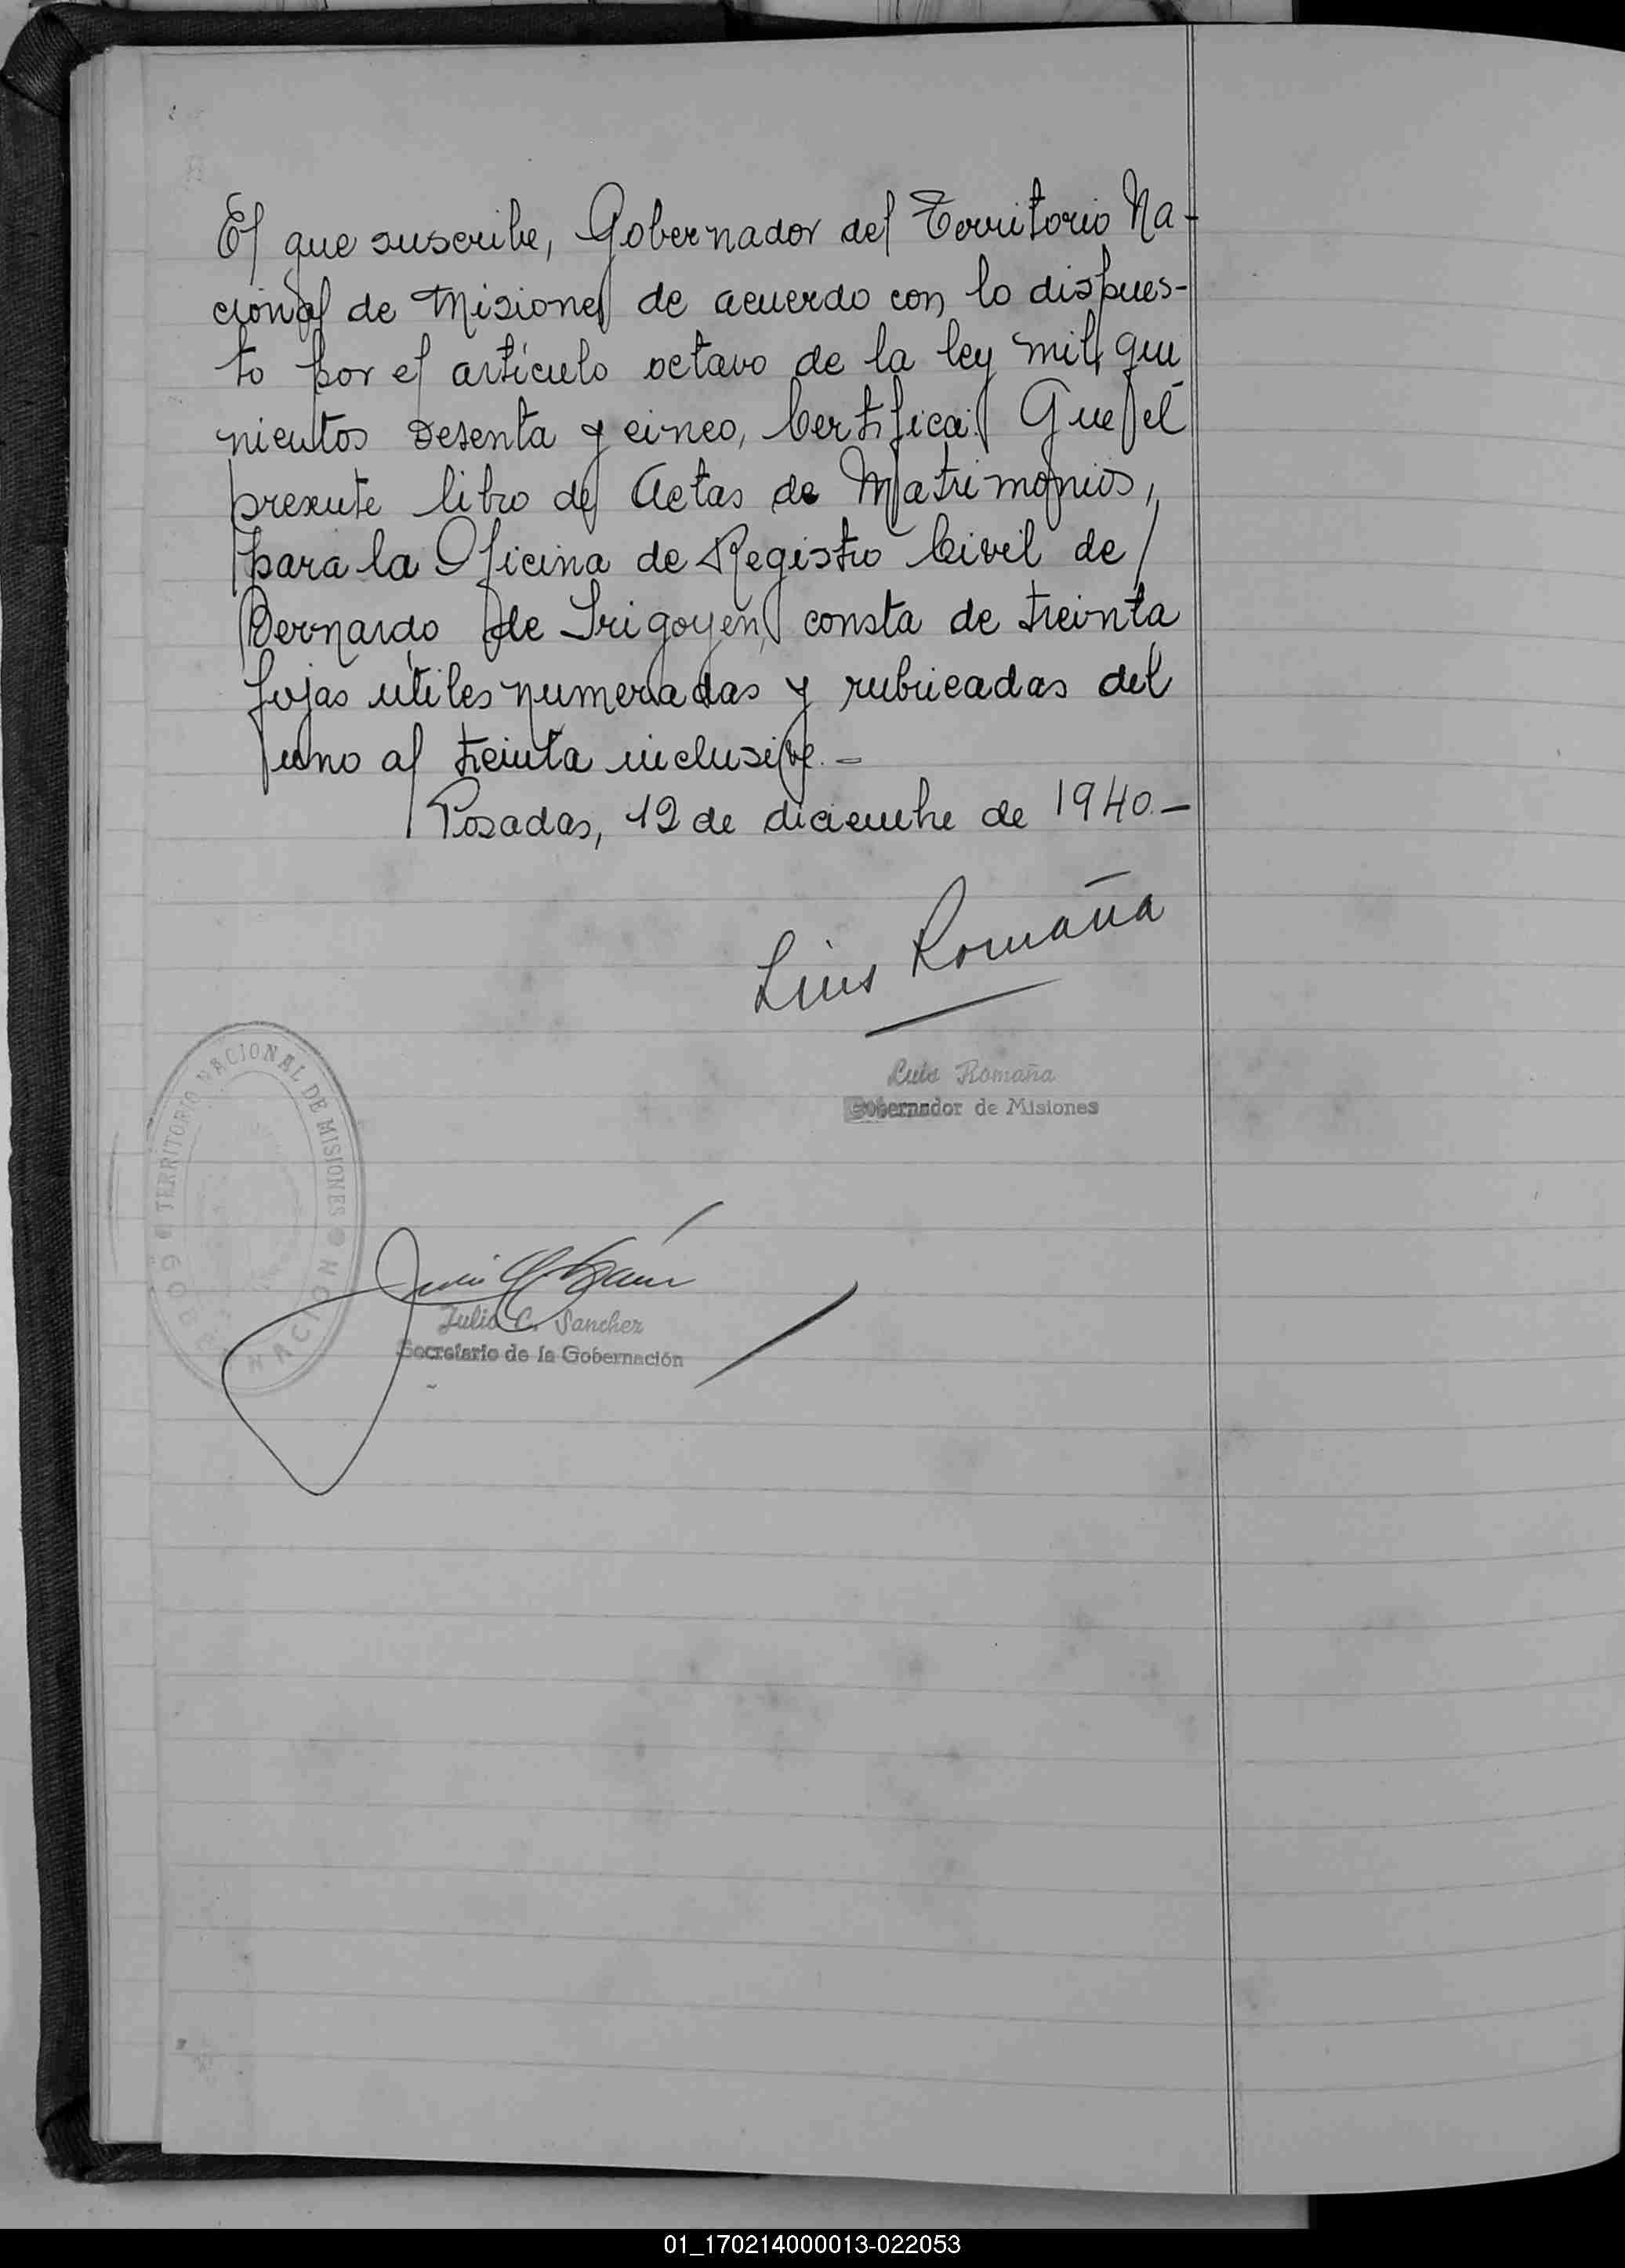 El que suscribe, Gobernador del Territorio Na-
cional de Misiones de acuerdo con lo dispues-
to por el artículo octavo de la ley mil qui
nientos sesenta y cinco, Certifica: Que el
presente libro de Actas de Matrimonios,
para la Oficina de Registro Civil de
Bernardo de Irigoyen, consta de treinta
fojas útiles numeradas y rubricadas del
uno al treinta inclusive.-
Posadas, 12 de diciembre de 1940.-
Luis Romaña
Luis Romaña
Gobernador de Misiones
TERRITORIO NACIONAL DE MISIONES
GOBERNACION
Julio C. Sanchez
Secretario de la Gobernación
01_170214000013-022053